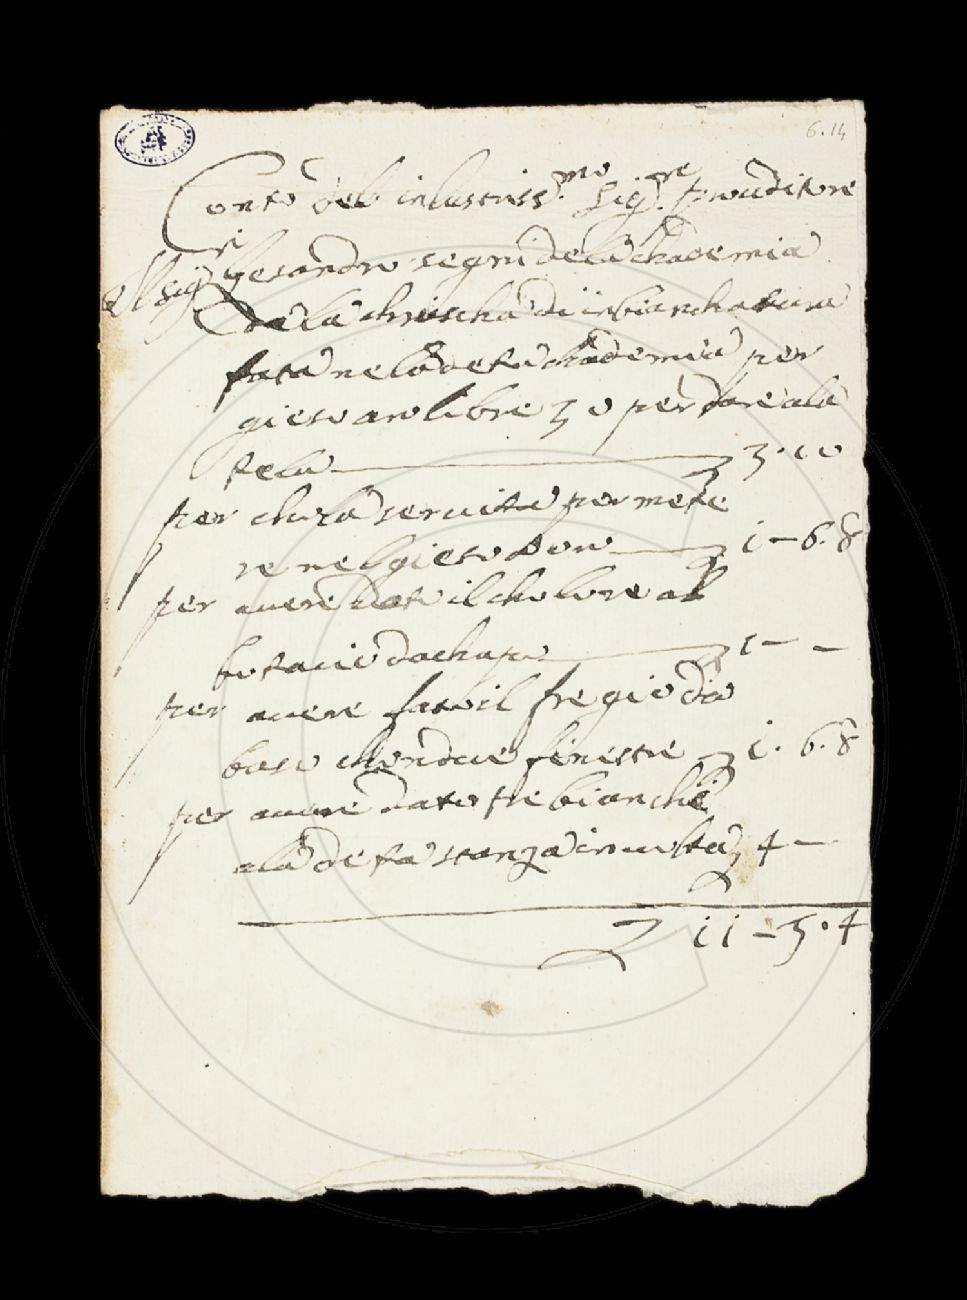 6.14
Conto del inlustriss.mo Sig.re proveditore
Il sig.ri Alesandro segni dela chademia
dala chruscha di inbianchatura
fata nela deta chademia per
gieso ano libre 30 per dare ala
tela 3.10
per chola servita per mete
re nel gieso 1-6.8
per avere dato il cholore al
da chapo 1- -
per avere fato il fregio da
baso chon due finestre 1.6.8
per avere dato tre bianchi
ala deta stanza in 4 -
11-3.4